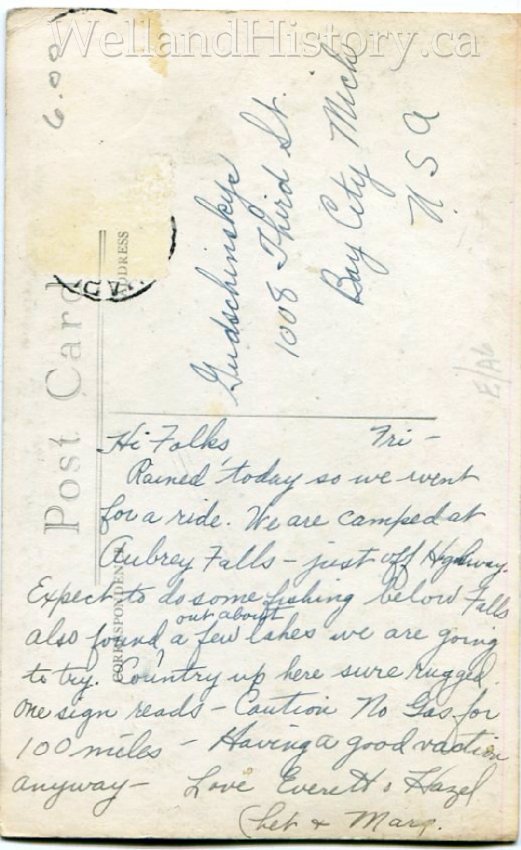 WellandHistory.ca
6.00
Post Card
ADDRESS
CORRESPONDENCE
Gudschinskye
1008 Third St.
Bay City Mich
U.S A
E/A6
Hi Folks, Fri -
Rained today so we went
for a ride. We are camped at
Aubrey Falls - just off Highway.
Expect to do some fishing below Falls
also found out about a few lakes we are going
to try. Country up here sure rugged.
One sign reads - Caution No Gas for
100 miles - Having a good vaction
anyway - Love Everett & Hazel
Chet + Marg.